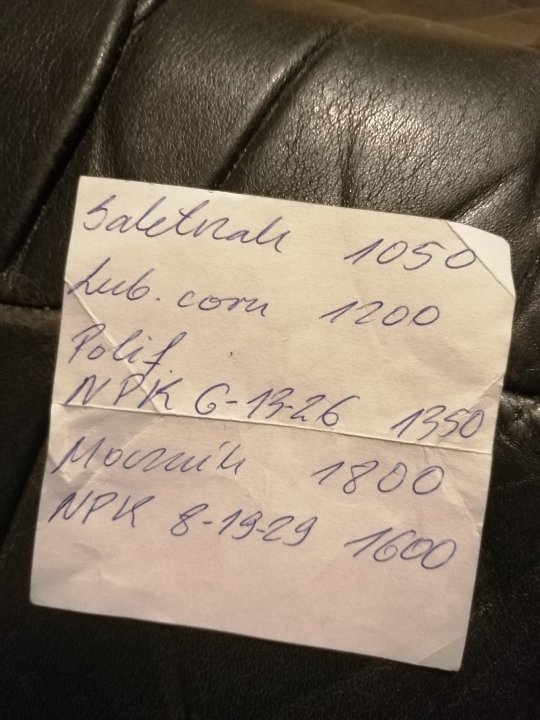 Saletrzak 1050
Lub. corn 1200
Polif.
NPK 6-13-26 1350
Mocznik 1800
NPK 8-19-29 1600